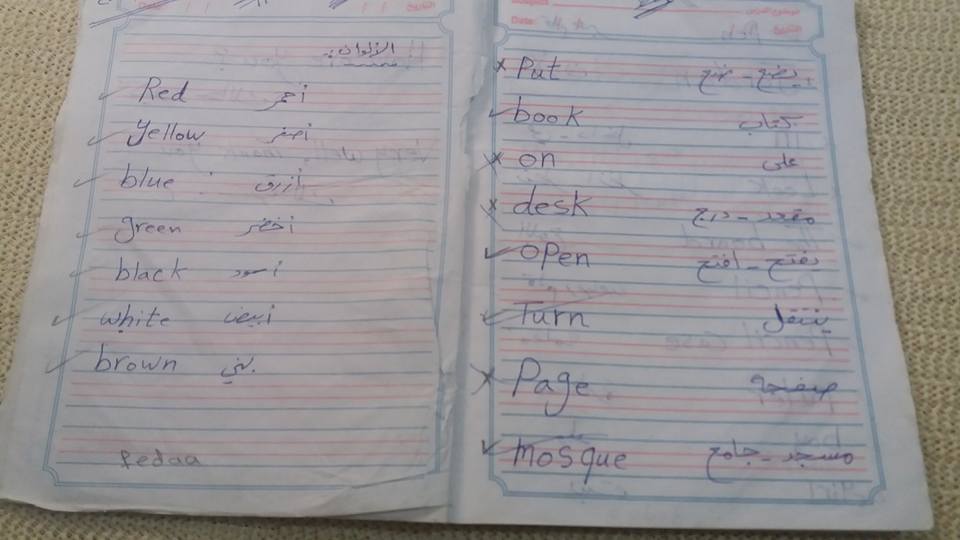 الألوان:
Red أحمر
Yellow أصفر
blue أزرق
green أخضر
black أسود
white أبيض
brown بني
fedaa
Put يضع - ضع
book كتاب
on على
desk مقعد - درج
open يفتح - افتح
Turn ينتقل
Page صفحة
Mosque مسجد - جامع